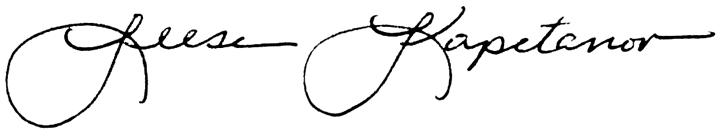 Reese Kapetanov